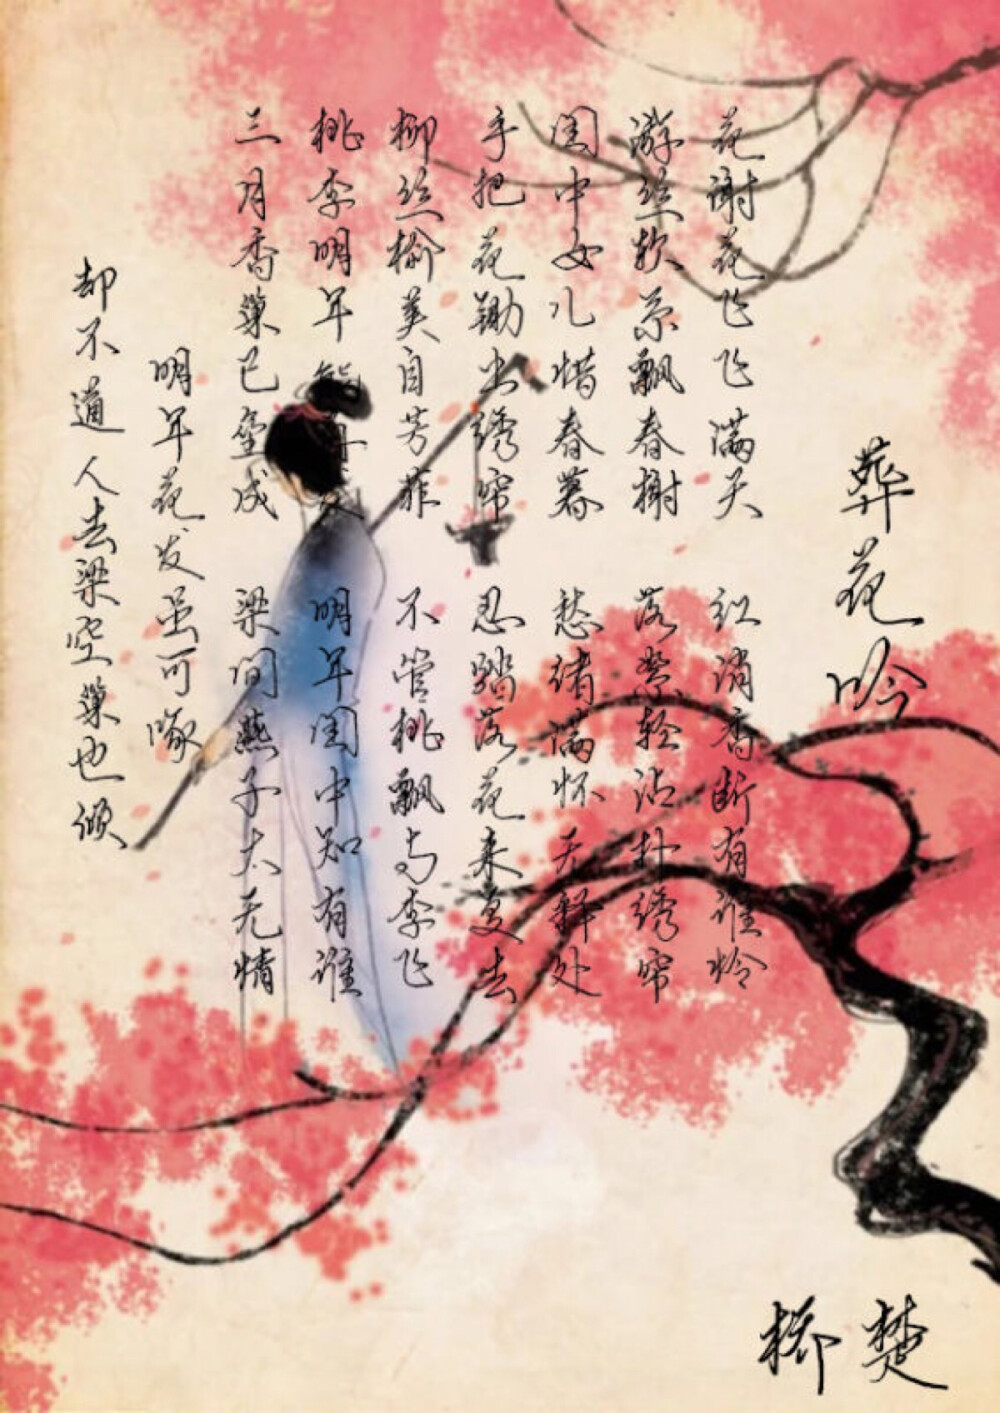 葬花吟
花谢花飞飞满天 红消香断有谁怜
游丝软系飘春榭 落絮轻沾扑绣帘
闺中女儿惜春暮 愁绪满怀无释处
手把花锄出绣帘 忍踏落花来复去
柳丝榆荚自芳菲 不管桃飘与李飞
桃李明年能再发 明年闺中知有谁
三月香巢已垒成 梁间燕子太无情
明年花发虽可啄
却不道人去梁空巢也倾
楚